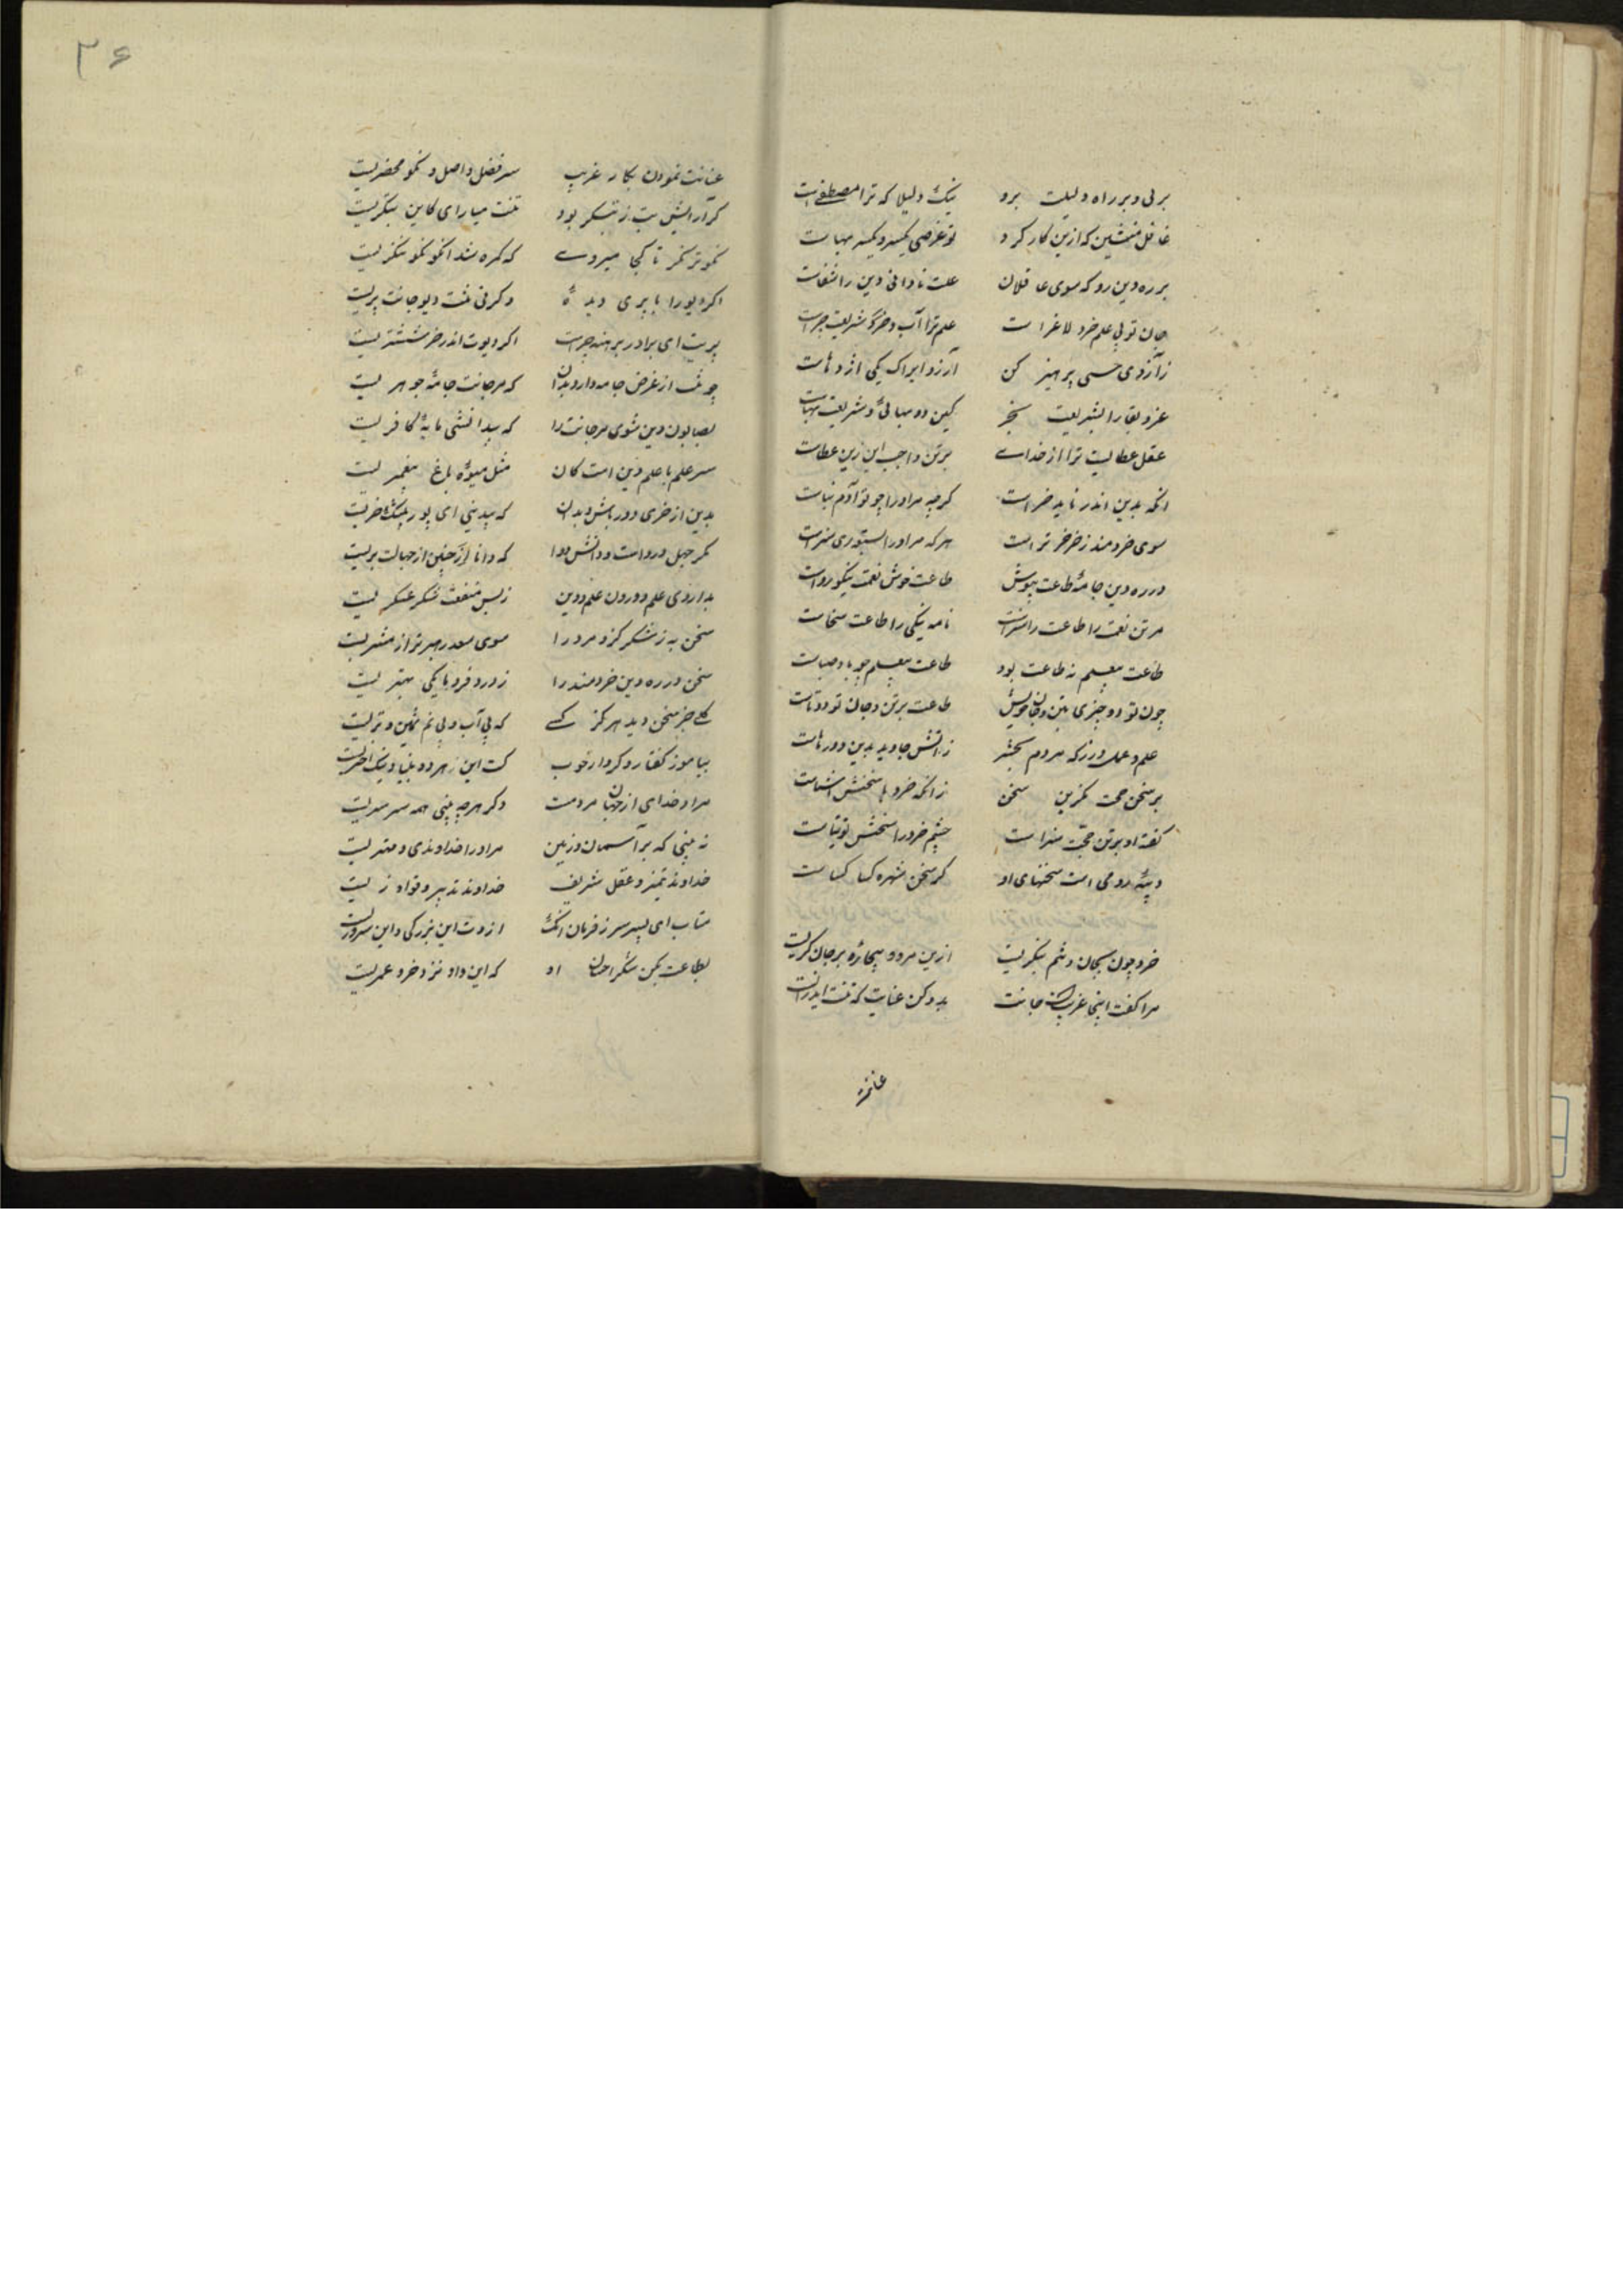 بر پی و بر راه دلیلت برو نیک دلیلا که ترا مصطفی است
غافل منشین که ازین کار کرد تو غرضی یکسر و یکسر هباست
بر ره دین رو که سوی عاقلان علت نادانی دین را شفاست
جان تو بی علم خرد لاغر است علم ترا آب و شریعت چراست
ز آرزوی حسی پرهیز کن آرزو ایراک یکی اژدهاست
عز و بقا را بشریعت بخر کین دو بهائی و شریعت بهاست
عقل عطایست ترا از خدای بر تن واجب این زین عطاست
انکه بدین اندر ناید خر است کرچه مر او را چو تو آدم نیاست
سوی خردمند ز خر خرتر است هر که مر او را بستوری سزاست
در ره دین جامهٔ طاعت بپوش طاعت خوش نعمت نیکو رداست
مر تن نعمت را طاعت سر است نامه نیکی را طاعت سخاست
طاعت بیعلم نه طاعت بود طاعت بیعلم چو باد صباست
چون تو دو چیزی بتن و جان خویش طاعت بر تن و جان تو دوتاست
علم و عمل ورز که مردم بحشر زاتش جاوید بدین دو رهاست
بر سخن حجت مگزین سخن زانکه خرد با سخنش آشناست
گفته او بر تن حجت سزاست چشم خرد را سخنش توتیاست
دیبه رومی است سخنهای او گر سخن شهره کسا کساست
خرد چون بجان و تنم بنگریست ازین هر دو بیچاره بر جان گریست
مرا گفت اینجا غریبست جانت بدو کن عنایت که تنت ایدریست
عنانت
۳۶
عنایت نمودن بکار غریب سر فضل و اصل و نکو محضریست
گر آرایش بت ز بتگر بود تنت میارای کاین بتگریست
نکوتر نگر تا کجا میروی که گمره شد آنکو نکو ننگریست
اگر دیو را با پری دیدهٔ وگر نی تنت دیو و جانت پریست
پریت ای برادر برهنه چراست اگر دیوت اندر خز ششتریست
چو تنت از عرض جامه دارد بدان که مر جانت جامهٔ جوهریست
بصابون دین شوی مر جانت را که بیدانشی مایهٔ کافریست
سر علم با علم دین است کان مثل میوهٔ باغ پیغمبریست
بدین از خری دور باش و بدان که بیدینی ای پور بیشک خریست
مگر جهل درد است و دانش دوا که دانا چنین از جهالت بریست
بداروی علم درون علم دین ز بس منفعت شکر عسکریست
سخن به ز شکر کزو مرد را سوی سعد رهبرتر از مشتریست
سخن در ره دین خردمند را
که جز سخن دید هرگز کسی که بی آب و بی نم نمین و تریست
بیاموز گفتار و کردار خوب کت این هر دو بنیاد نیک اختریست
مراد خدای از جهان مردمست دگر هرچه بینی همه سرسریست
نه بینی که بر آسمان و زمین مر او را خداوندی و مهتریست
خداوند تمیز و عقل شریف خداوند تدبیر و قول
متاب ای پسر سر ز فرمان آنک ازوت این بزرگی و این سروریست
بطاعت بکن شکر احسان او که این داد نزد خرد عمریست